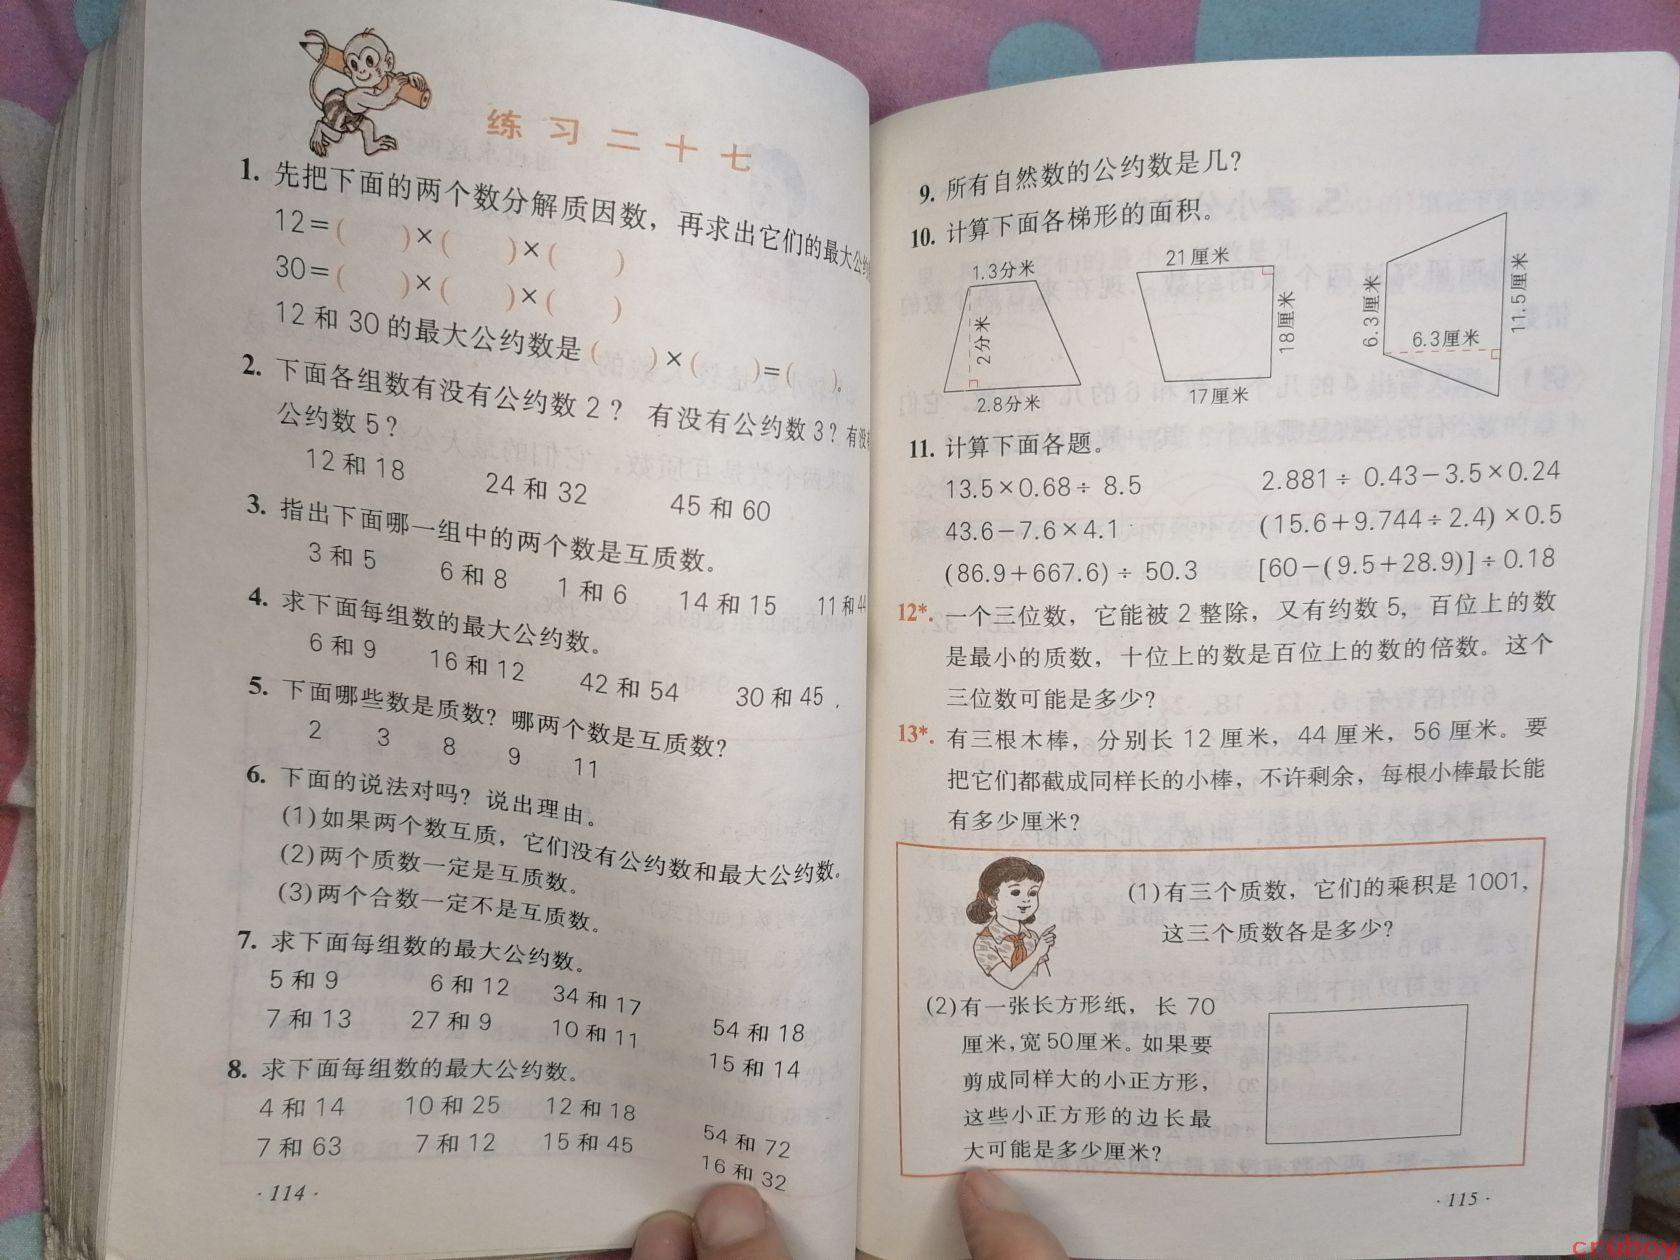 练习二十七
1. 先把下面的两个数分解质因数，再求出它们的最大公约
12=( )×( )×( )
30=( )×( )×( )
12 和 30 的最大公约数是( )×( )=( )。
2. 下面各组数有没有公约数 2？ 有没有公约数 3？有没
公约数 5？
12 和 18 24 和 32 45 和 60
3. 指出下面哪一组中的两个数是互质数。
3 和 5 6 和 8 1 和 6 14 和 15 11 和 44
4. 求下面每组数的最大公约数。
6 和 9 16 和 12 42 和 54 30 和 45
5. 下面哪些数是质数？哪两个数是互质数？
2 3 8 9 11
6. 下面的说法对吗？说出理由。
(1)如果两个数互质，它们没有公约数和最大公约数。
(2)两个质数一定是互质数。
(3)两个合数一定不是互质数。
7. 求下面每组数的最大公约数。
5 和 9 6 和 12 34 和 17 54 和 18
7 和 13 27 和 9 10 和 11 15 和 14
8. 求下面每组数的最大公约数。
4 和 14 10 和 25 12 和 18 54 和 72
7 和 63 7 和 12 15 和 45 16 和 32
·114·
9. 所有自然数的公约数是几？
10. 计算下面各梯形的面积。
1.3分米
2分米
2.8分米
21厘米
18厘米
17厘米
6.3厘米
6.3厘米
11.5厘米
11. 计算下面各题。
13.5×0.68÷8.5 2.881÷0.43－3.5×0.24
43.6－7.6×4.1 (15.6＋9.744÷2.4)×0.5
(86.9＋667.6)÷50.3 [60－(9.5＋28.9)]÷0.18
12*. 一个三位数，它能被 2 整除，又有约数 5，百位上的数
是最小的质数，十位上的数是百位上的数的倍数。这个
三位数可能是多少？
13*. 有三根木棒，分别长 12 厘米，44 厘米，56 厘米。要
把它们都截成同样长的小棒，不许剩余，每根小棒最长能
有多少厘米？
(1)有三个质数，它们的乘积是 1001，
这三个质数各是多少？
(2)有一张长方形纸，长 70
厘米，宽50厘米。如果要
剪成同样大的小正方形，
这些小正方形的边长最
大可能是多少厘米？
·115·
cruboy